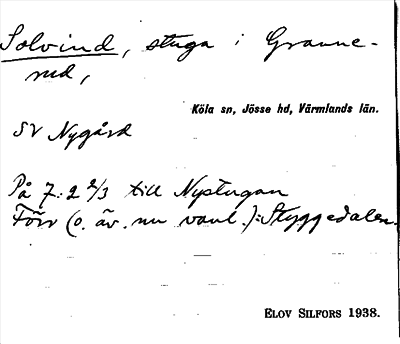 Solvind, stuga i Granne-
rud,
Köla sn, Jösse hd, Värmlands län.
SV Nygård
På 7:2 2/3 till Nystugan
Förr (o. äv. nu vanl.): Styggedalen.
ELOV SILFORS 1938.